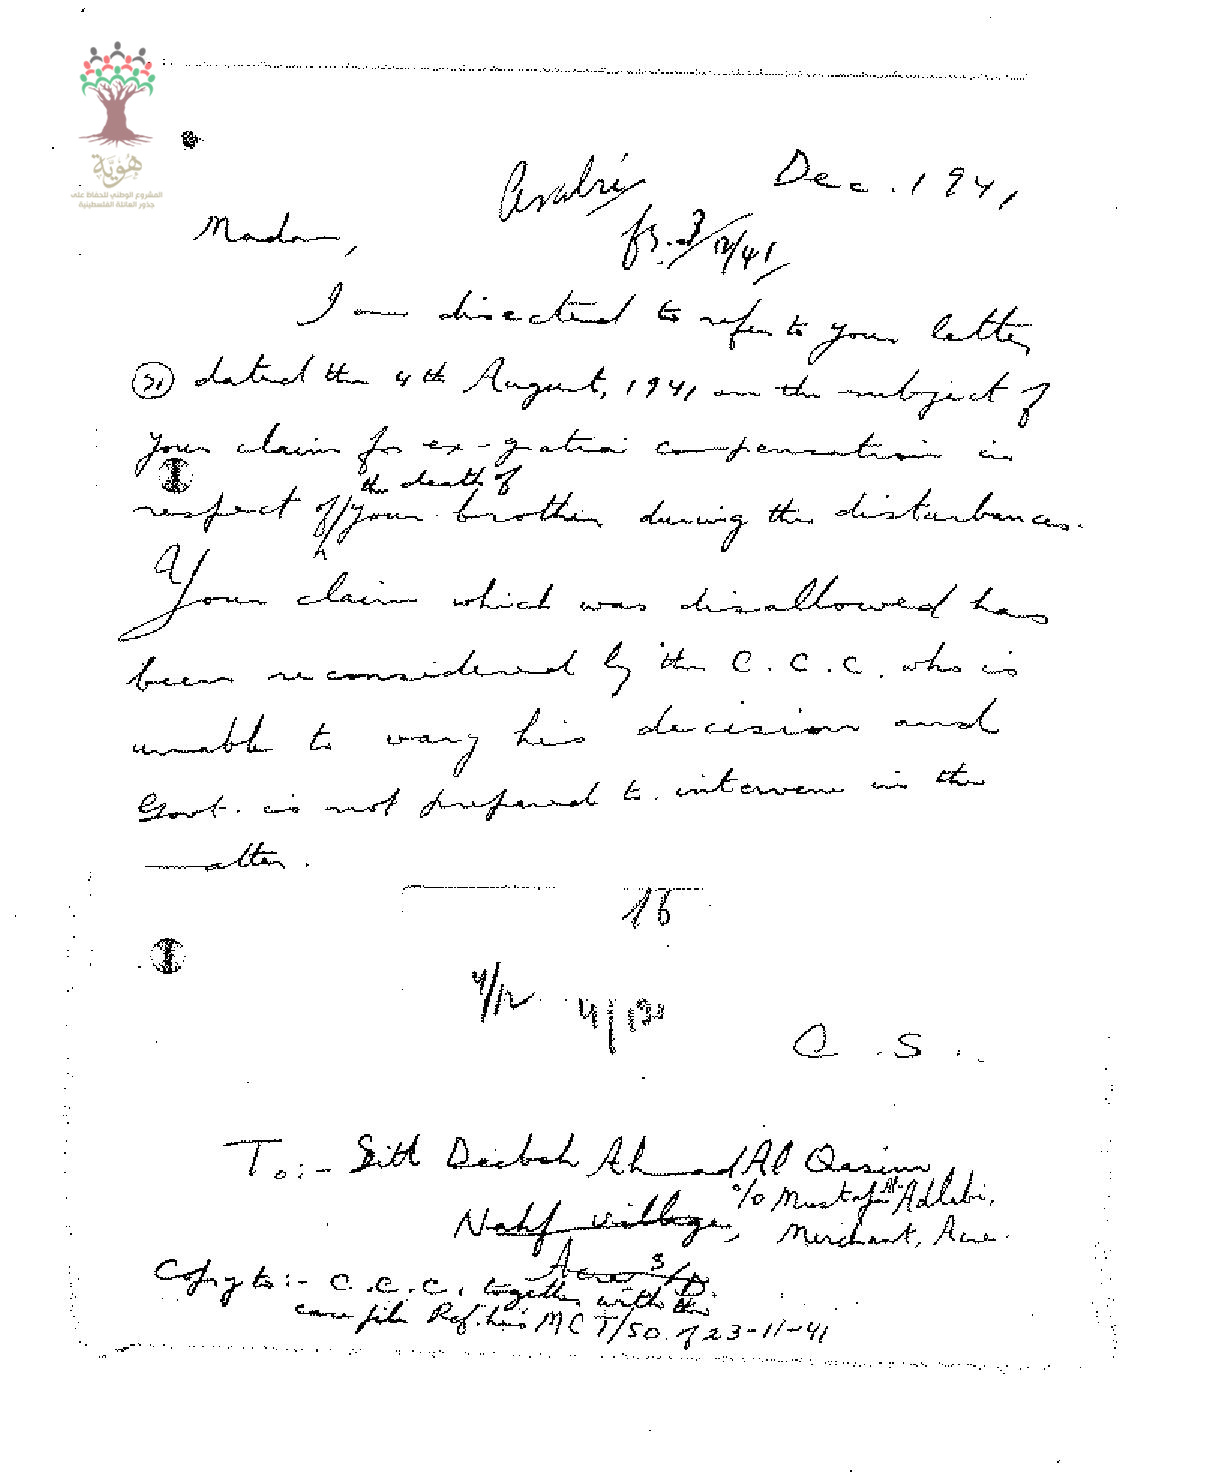 هُوِيَّة
المشروع الوطني للحفاظ على
جذور العائلة الفلسطينية
Dec. 1941
3/12/41
Madam,
I am directed to refer to your letter
dated the 4th August, 1941 on the subject of
your claim for ex-gratia compensation in
the death of
respect of your brother during the disturbances.
Your claim which was disallowed has
been reconsidered by the C.C.C. who is
unable to vary his decision and
Govt. is not prepared to intervene in the
matter.
4/12
C.S.
To:- Sitt Deebeh Ahmad Al Qasim
c/o Mustafa Al-Adlebi,
Nahf village, Merchant, Acre.
Acre S/D.
Copy to:- C.C.C. together with the
case file Ref. his MCT/50 of 23-11-41